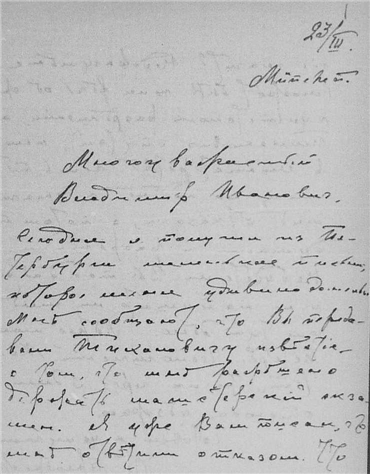 23/III.
Многоуважаемый
Владимир Иванович,
Сегодня я получил из Пе-
тербурга маленькое письмо,
которое меня удивило
Мнѣ сообщаютъ, что Вы передо-
вали извѣстіе
о томъ, что мнѣ разрѣшено
держать магистерскій экза-
мен. Я уже Вам писал, что
мнѣ отвѣтили отказом. Что